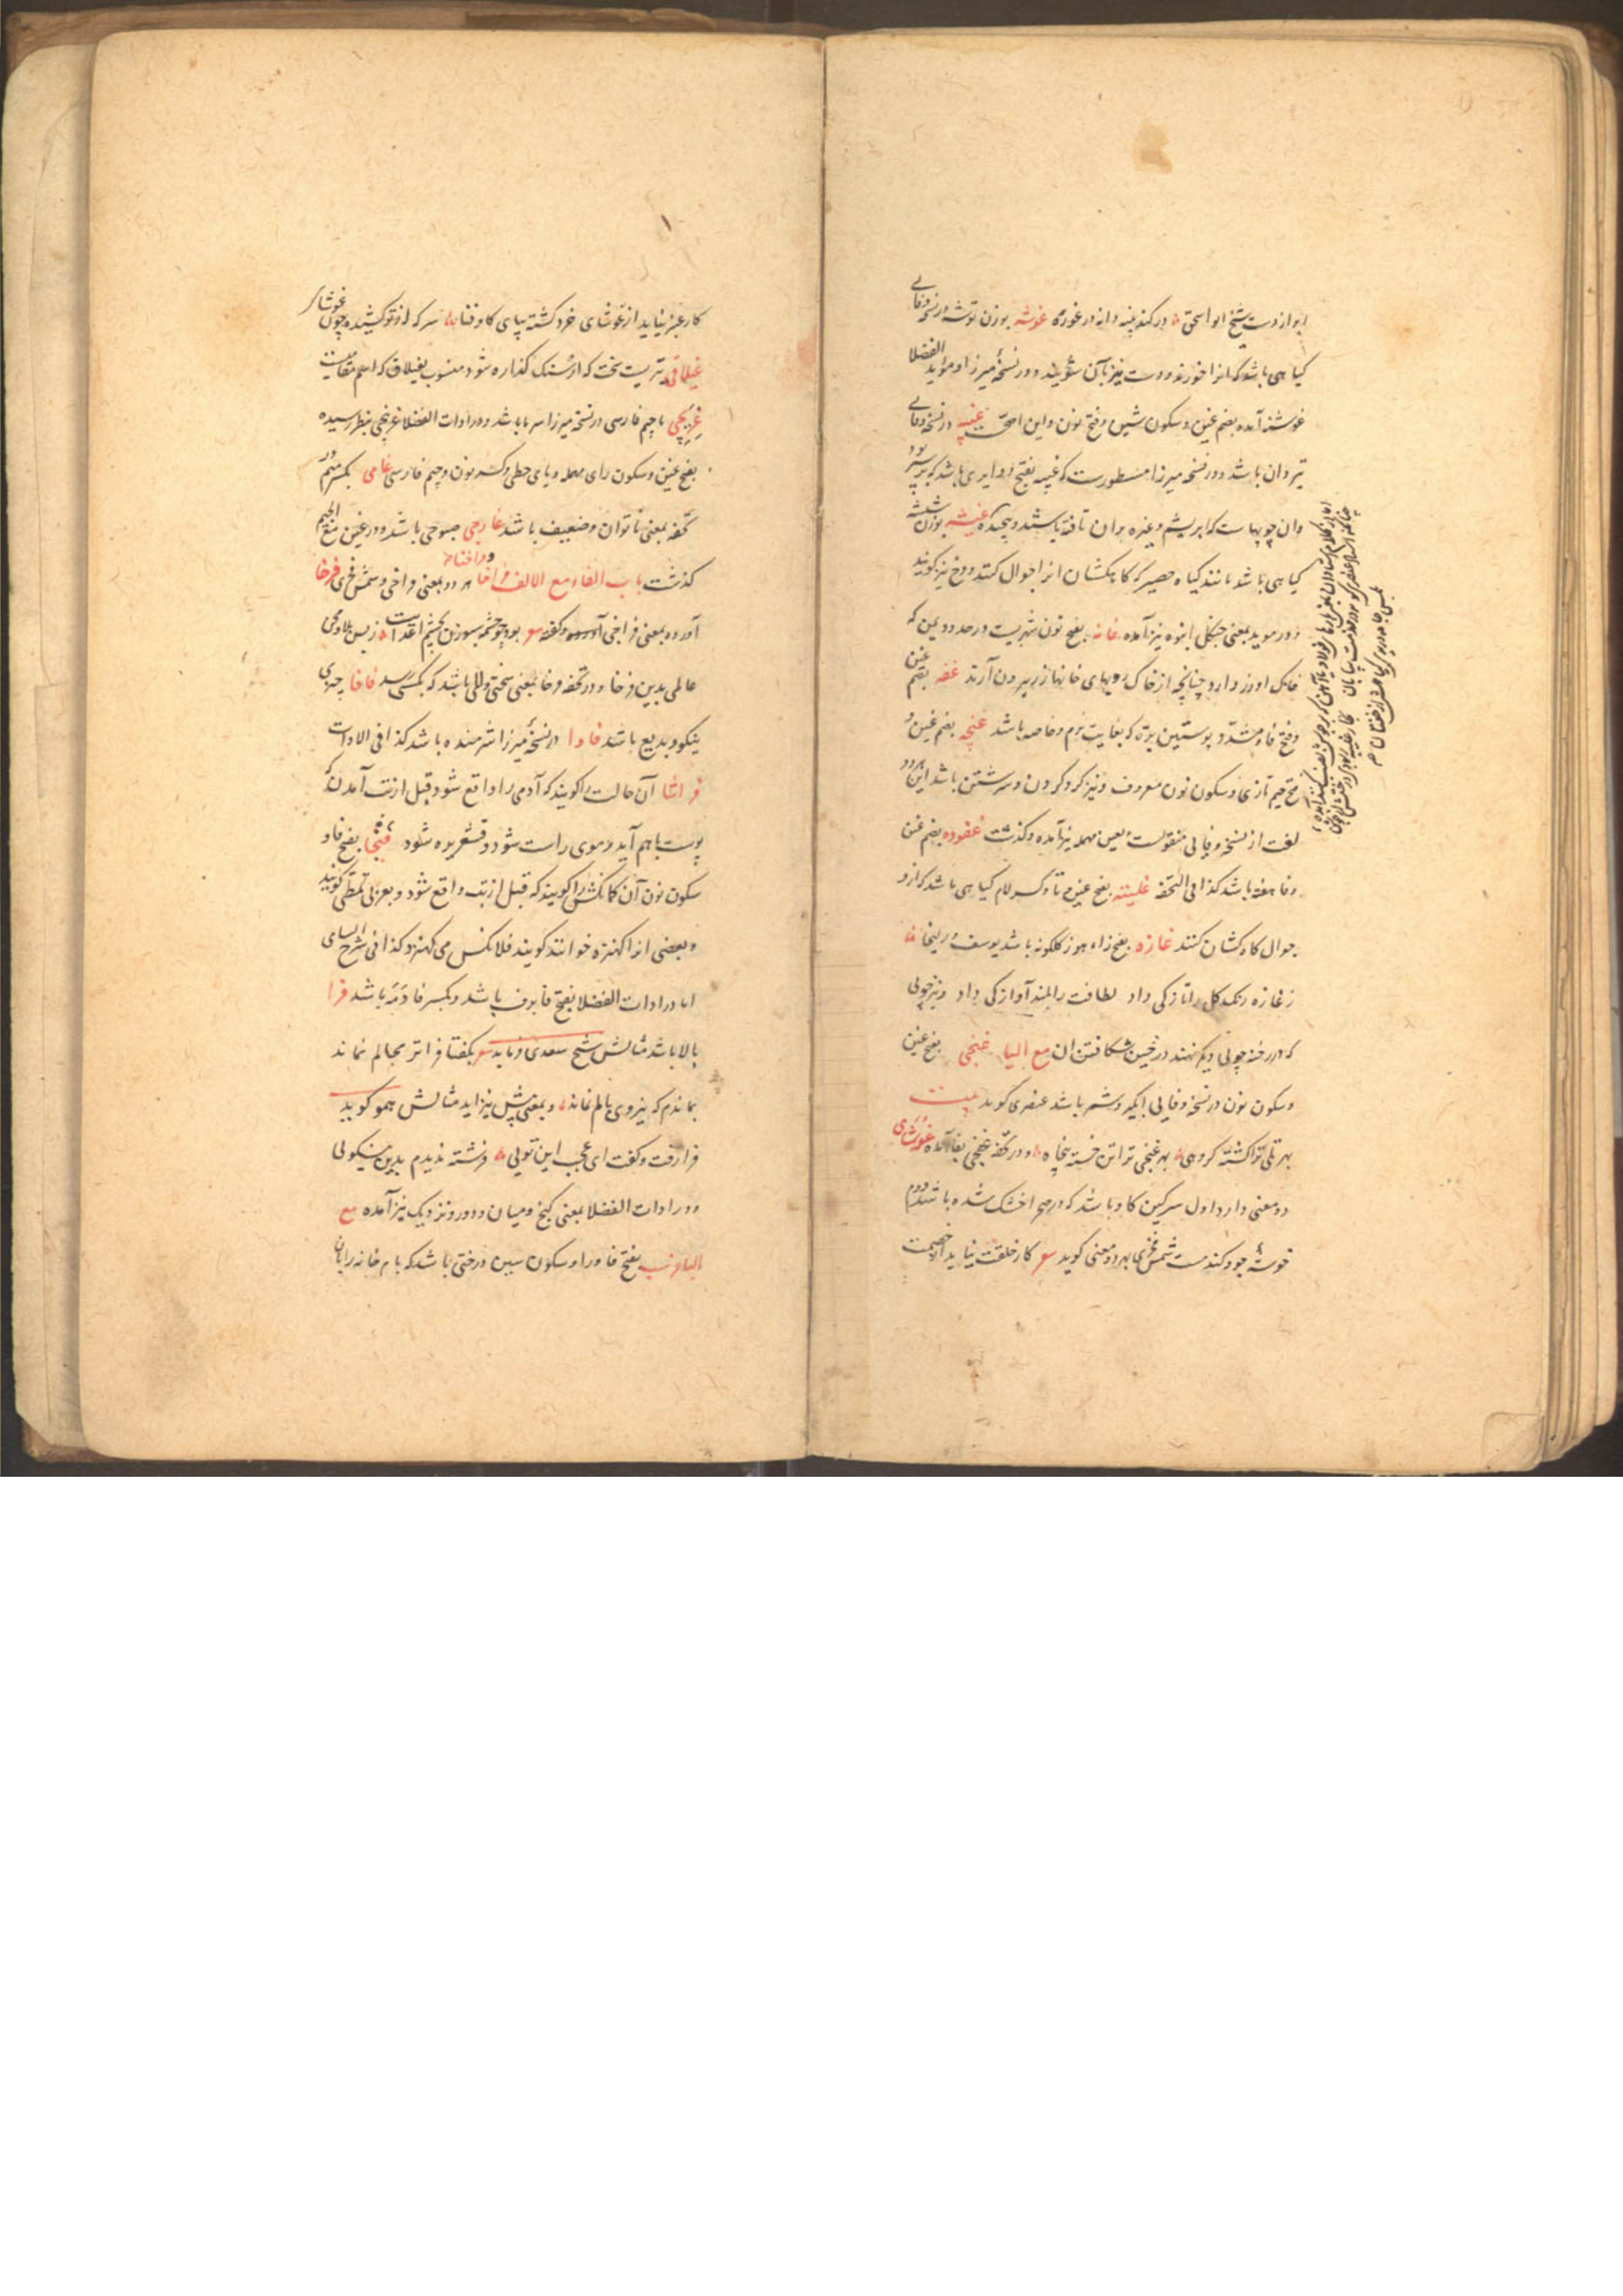 ابو از دست شیخ ابو اسحق در کند پنبه دانه در غوزه غوشه بوزن توشه در نسخه وفائی
کیاهی باشد که انرا خورند و دست نیز بآن شویند و در نسخهٔ میرزا و موید الفضلا
غوشنه آمده بضم غین و سکون شین و فتح نون و این اصح غیبه در نسخه وفائی
تیردان باشد و در نسخه میرزا مسطورست که غیبه بفتح دوایری باشد که بر سپر
وان چوبهاست که ابریشم و غیره بران تافته باشند و پیچیده غیشه بوزن شیشه
کیاهی باشد مانند کیاه حصیر که کاهکشان انرا جوال کنند و دخ نیز کویند
و در موید بمعنی جنکلی انبوه نیز آمده غانه بفتح نون شهریست در حدود یمن که
خانک او زر دارد چنانچه از خاک روبهای خانها زر بیرون آرند غفه بضم غین
و فتح فاء مشدد پوستین بره که بغایت نرم و خاصه باشد غنچه بضم غین و
فتح جیم تازی و سکون نون معروف و نیز کرد کردن و سرشتن باشد این دو
لغت از نسخه وفائی منقولست و بعین مهمله نیز آمده و کذشت غفوده بضم غین
و فا هفته باشد کذا فی التحفه غلیته بفتح غین و تا و کسر لام کیاهی باشد که ازو
جوال کاه کشان کنند غازه بفتح زاء هوز کلکونه باشد یوسف و زلیخا
ز غازه رنک کل را تازکی داد لطافت را بلند آوازکی داد و نیز چوبی
که در رخنه چوبی دیکر نهند در حین شکافتن ان مع الیا غنجی بفتح غین
و سکون نون در نسخه وفائی انکیر و شمر باشد عنصری کوید بیت
بهر تلی تو کشته کروهی بهر غنجی تو اتن خسته پنجاه و در تحفه غنجی بفا آمده غوشای
دو معنی دارد اول سرکین کاو باشد که در صحرا خشک شده باشد دوم
خوشهٔ جو و کندمست شمس فخری بهر دو معنی کوید شعر کار خلقت نیاید از خصمت
کار عنبر نیاید از غوشای خرد کشته بپای کاو فنا سر که او تو کشیده چون غوشای
غیلاقی تیریست سخت که از سنک کذاره شود منسوب بغیلاق که اسم مقامیست
غریچی با جیم فارسی در نسخه میرزا سر ما باشد و در ادات الفضلا غرنچی بنظر رسیده
بفتح غین و سکون رای مهمله و یای حطی و کسر نون و جیم فارسی غامی بکسر میم در
تحفه بمعنی ناتوان و ضعیف باشد غارجی صبوحی باشد و در غین مع الجیم
کذشت باب الفاء مع الالف فراخا و فراخنا هر دو بمعنی فراخی و شمس فخری فرخا
آورده بمعنی فراخی و کفته شعر بود چو چشمه سوزن بچشم اعدایت ز بس بلا و محن
عالمی بدین فرخا و در تحفه فرخا بمعنی سختی و دللی باشد که بکسی رسد فافا چیزی
نیکو و بدیع باشد فاوا در نسخهٔ میرزا شرمنده باشد کذا فی الادات
فراشا آن حالت را کویند که آدمی را واقع شود قبل از تب آمدن که
پوست با هم آید و موی راست شود و قشعریره شود فنجا بفتح فا و
سکون نون آن کمانکشی را کویند که قبل از تب واقع شود و بعربی تمطی کویند
و بعضی انرا کهنزه خوانند کویند فلانکس می کهنزد کذا فی شرح السامی
اما در ادات الفضلا بفتح فا برف باشد و بکسر فا دمه باشد فرا
بالا باشد مثالش شیخ سعدی فرماید شعر بکفتا فراتر مجالم نماند
بماندم که نیروی بالم نماند و بمعنی پیش نیز اید مثالش همو کوید
فرا رفت و کفت ای عجب این توئی فرشته ندیدم بدین نیکوئی
و در ادات الفضلا بمعنی کنج و میان و دور و نزدیک نیز آمده مع
الباء فرسب بفتح فا و را و سکون سین درختی باشد که بام خانه را بان